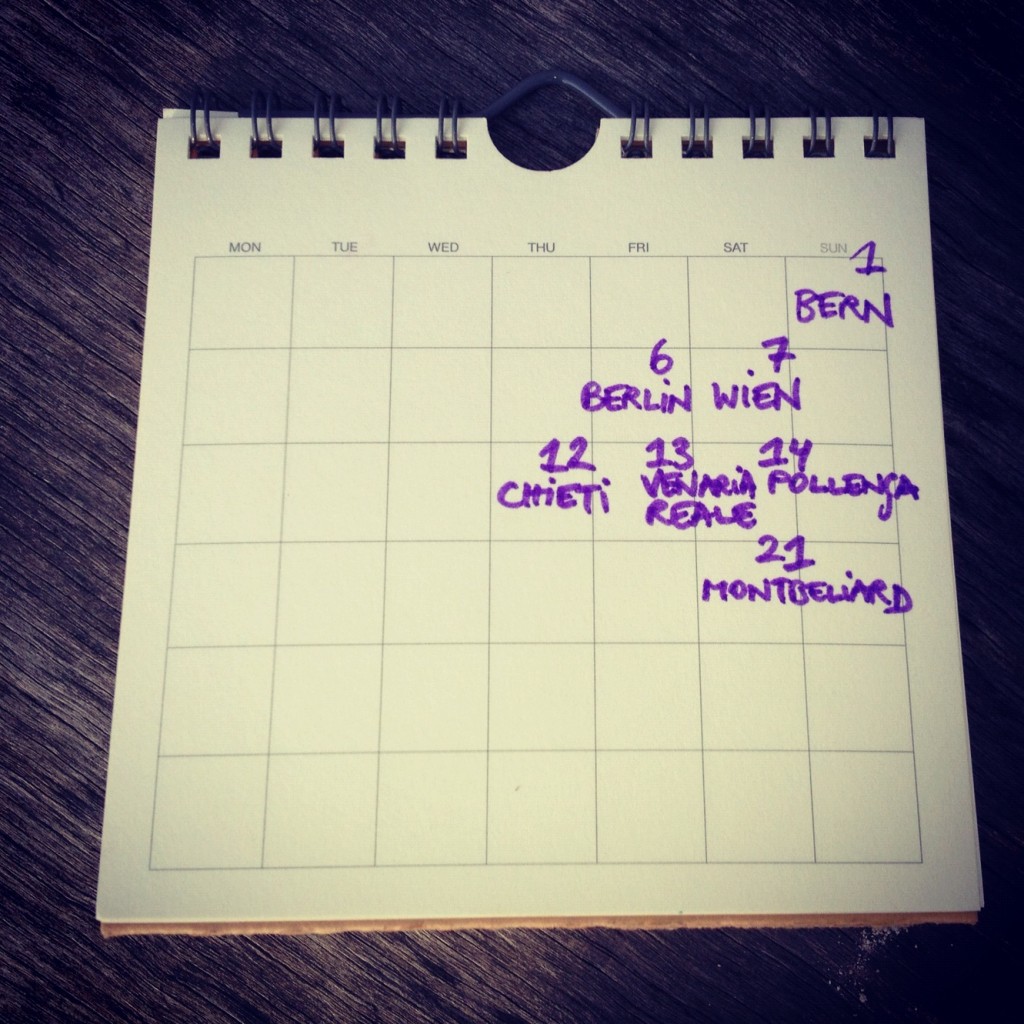 MON TUE WED THU FRI SAT SUN
1
BERN
6 7
BERLIN WIEN
12 13 14
CHIETI VENARIA POLLENÇA
REALE
21
MONTBELIARD